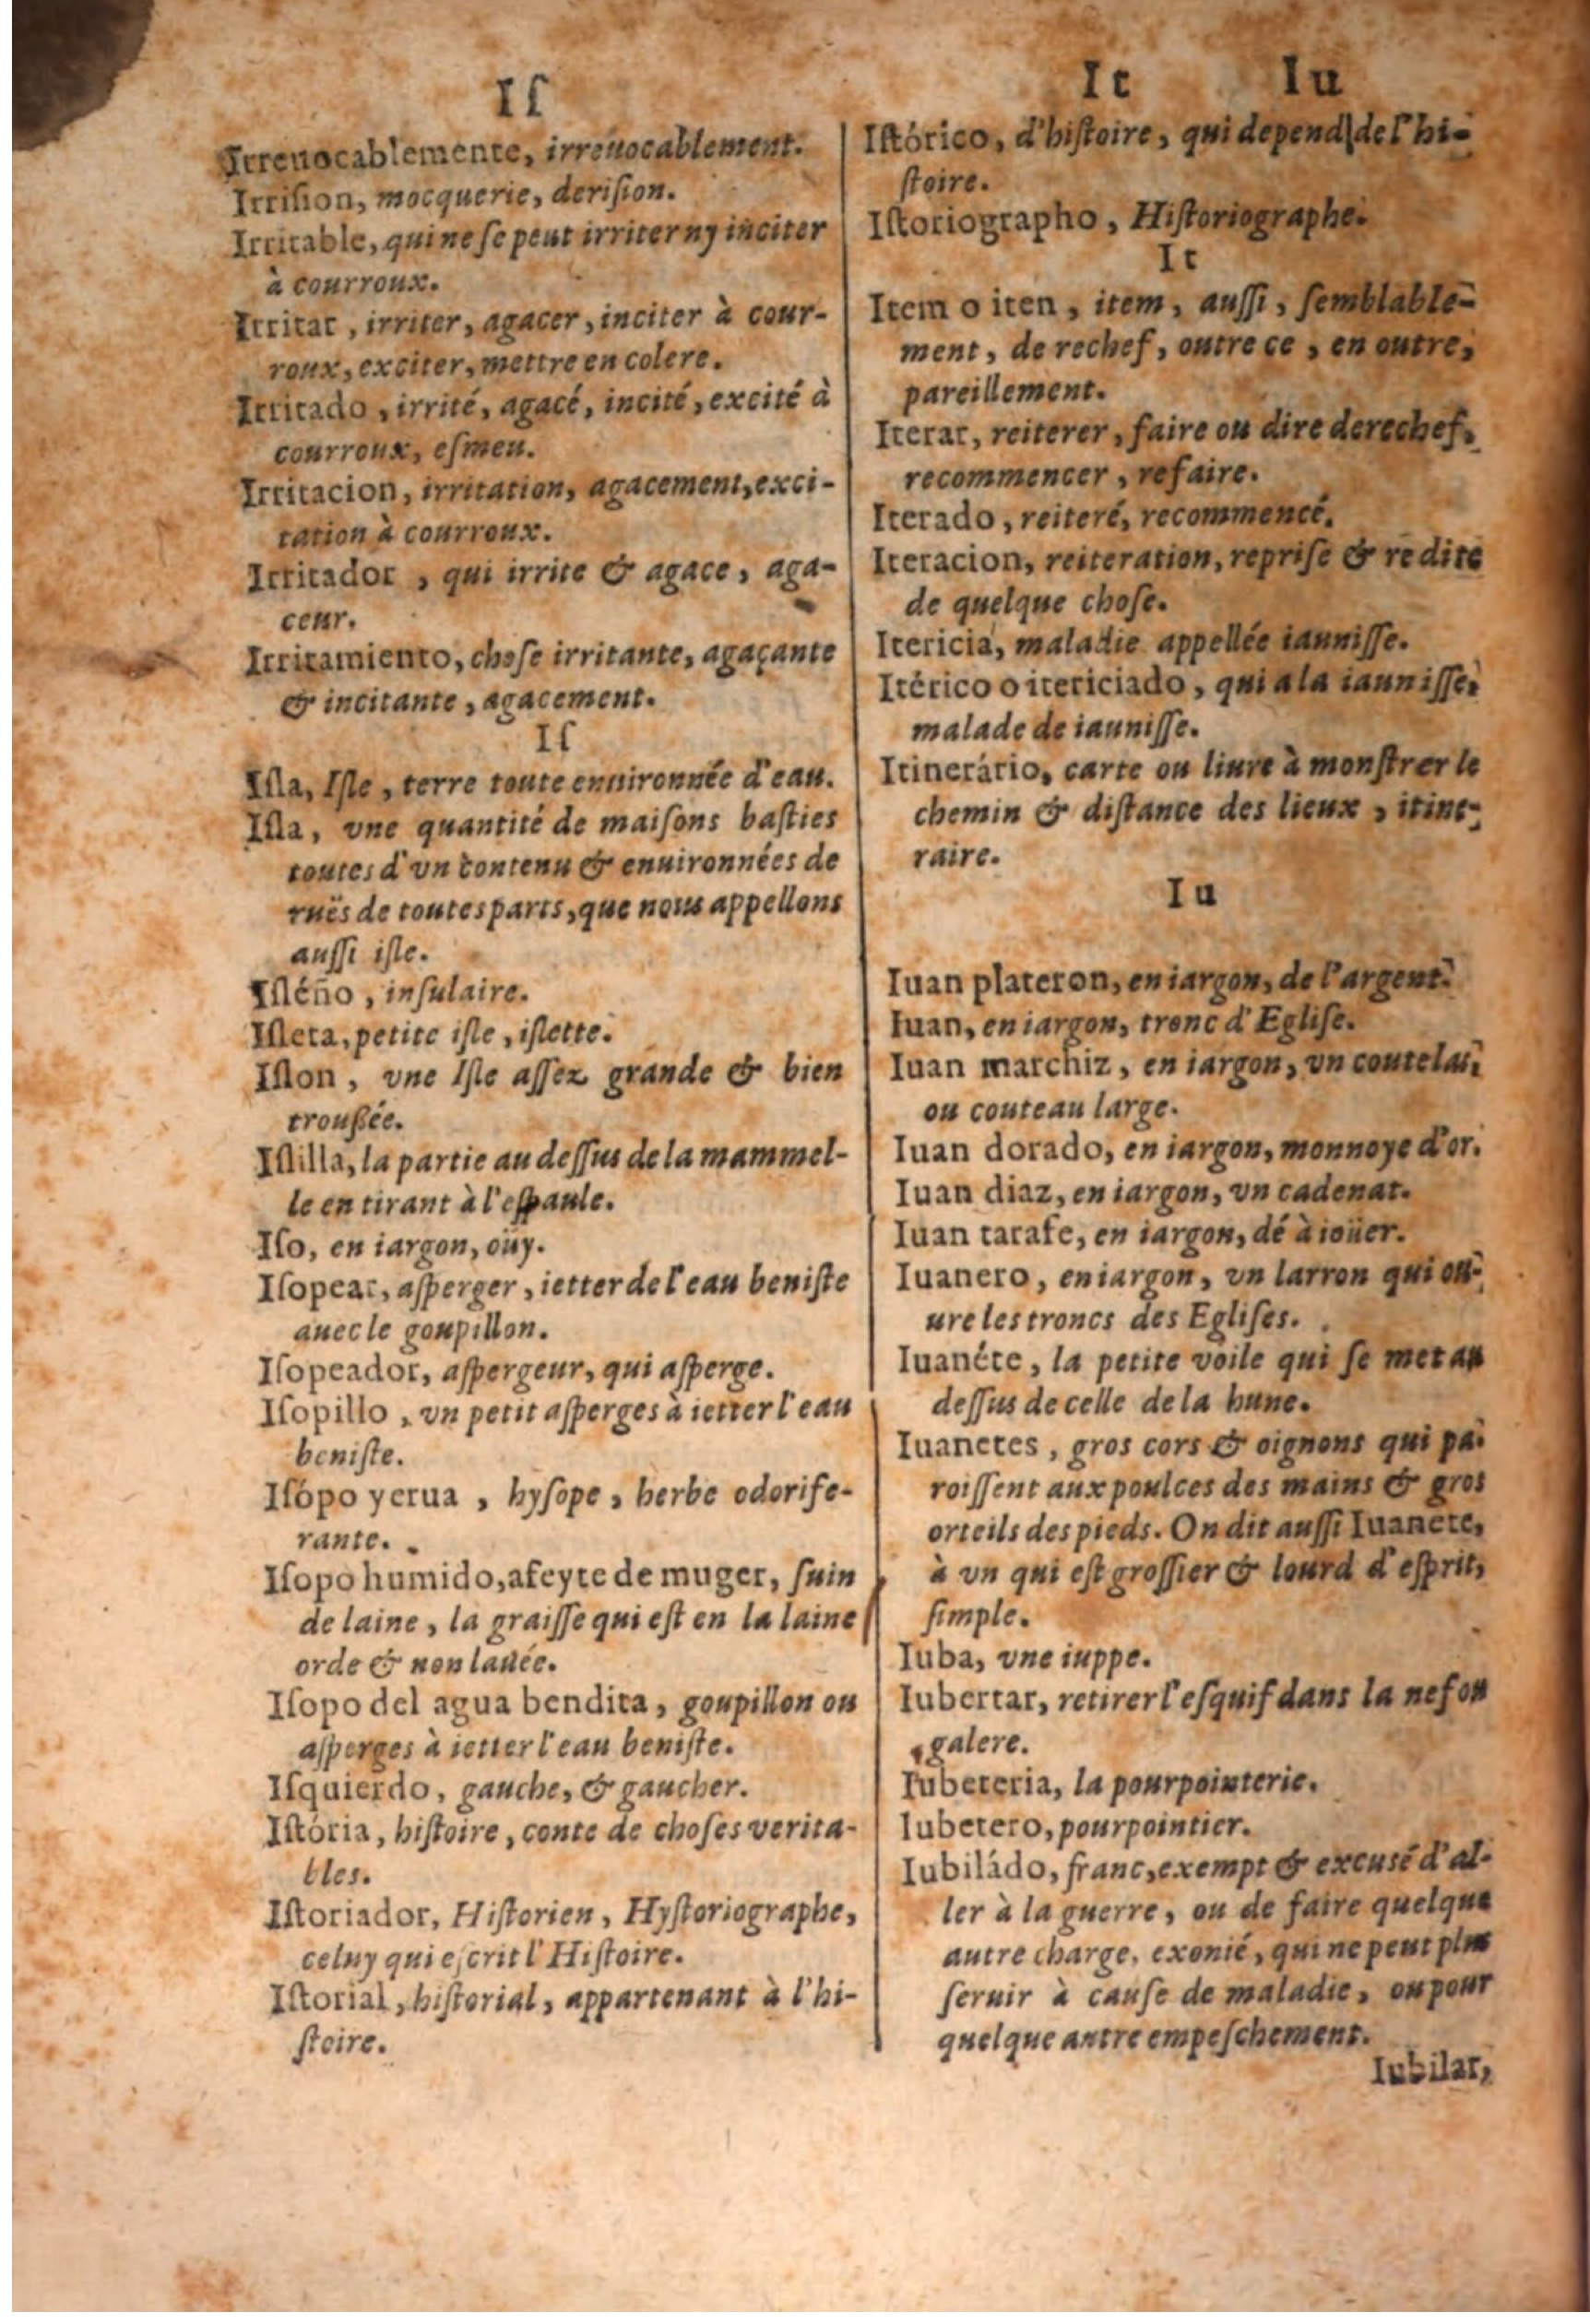 Iſ
Irreuocablemente, irreuocablement.
Irriſion, mocquerie, deriſion.
Irritable, qui ne ſe peut irriter ny inciter
à courroux.
Irritar, irriter, agacer, inciter à cour-
roux, exciter, mettre en colere.
Irritado, irrité, agacé, incité, excité à
courroux, eſmeu.
Irritacion, irritation, agacement, exci-
tation à courroux.
Irritador, qui irrite & agace, aga-
ceur.
Irritamiento, choſe irritante, agaçante
& incitante, agacement.
Iſ
Iſla, Iſle, terre toute enuironnée d'eau.
Iſla, vne quantité de maiſons baſties
toutes d'vn contenu & enuironnées de
ruës de toutes parts, que nous appellons
auſſi iſle.
Iſléño, inſulaire.
Iſleta, petite iſle, iſlette.
Iſlon, vne Iſle aſſez grande & bien
trouſſée.
Iſlilla, la partie au deſſus de la mammel-
le en tirant à l'eſpaule.
Iſo, en iargon, oüy.
Iſopear, aſperger, ietter de l'eau beniſte
auec le goupillon.
Iſopeador, aſpergeur, qui aſperge.
Iſopillo, vn petit aſperges à ietter l'eau
beniſte.
Iſópo yerua, hyſope, herbe odorife-
rante.
Iſopo humido, afeyte de muger, ſuin
de laine, la graiſſe qui eſt en la laine
orde & non lauée.
Iſopo del agua bendita, goupillon ou
aſperges à ietter l'eau beniſte.
Iſquierdo, gauche, & gaucher.
Iſtória, hiſtoire, conte de choſes verita-
bles.
Iſtoriador, Hiſtorien, Hyſtoriographe,
celuy qui eſcrit l'Hiſtoire.
Iſtorial, hiſtorial, appartenant à l'hi-
ſtoire.
It Iu
Iſtórico, d'hiſtoire, qui depend de l'hi-
ſtoire.
Iſtoriographo, Hiſtoriographe.
It
Item o iten, item, auſſi, ſemblable-
ment, de rechef, outre ce, en outre,
pareillement.
Iterar, reiterer, faire ou dire derechef,
recommencer, refaire.
Iterado, reiteré, recommencé.
Iteracion, reiteration, repriſe & redite
de quelque choſe.
Itericia, maladie appellée iauniſſe.
Itérico o itericiado, qui a la iauniſſe,
malade de iauniſſe.
Itinerário, carte ou liure à monſtrer le
chemin & diſtance des lieux, itine-
raire.
Iu
Iuan plateron, en iargon, de l'argent.
Iuan, en iargon, tronc d'Egliſe.
Iuan marchiz, en iargon, vn coutelas,
ou couteau large.
Iuan dorado, en iargon, monnoye d'or.
Iuan diaz, en iargon, vn cadenat.
Iuan tarafe, en iargon, dé à ioüer.
Iuanero, en iargon, vn larron qui ou-
ure les troncs des Egliſes.
Iuanéte, la petite voile qui ſe met au
deſſus de celle de la hune.
Iuanetes, gros cors & oignons qui pa-
roiſſent aux poulces des mains & gros
orteils des pieds. On dit auſſi Iuanete,
à vn qui eſt groſſier & lourd d'eſprit,
ſimple.
Iuba, vne iuppe.
Iubertar, retirer l'eſquif dans la nef ou
galere.
Iubeteria, la pourpointerie.
Iubetero, pourpointier.
Iubiládo, franc, exempt & excusé d'al-
ler à la guerre, ou de faire quelque
autre charge, exonié, qui ne peut plus
ſeruir à cauſe de maladie, ou pour
quelque autre empeſchement.
Iubilar,